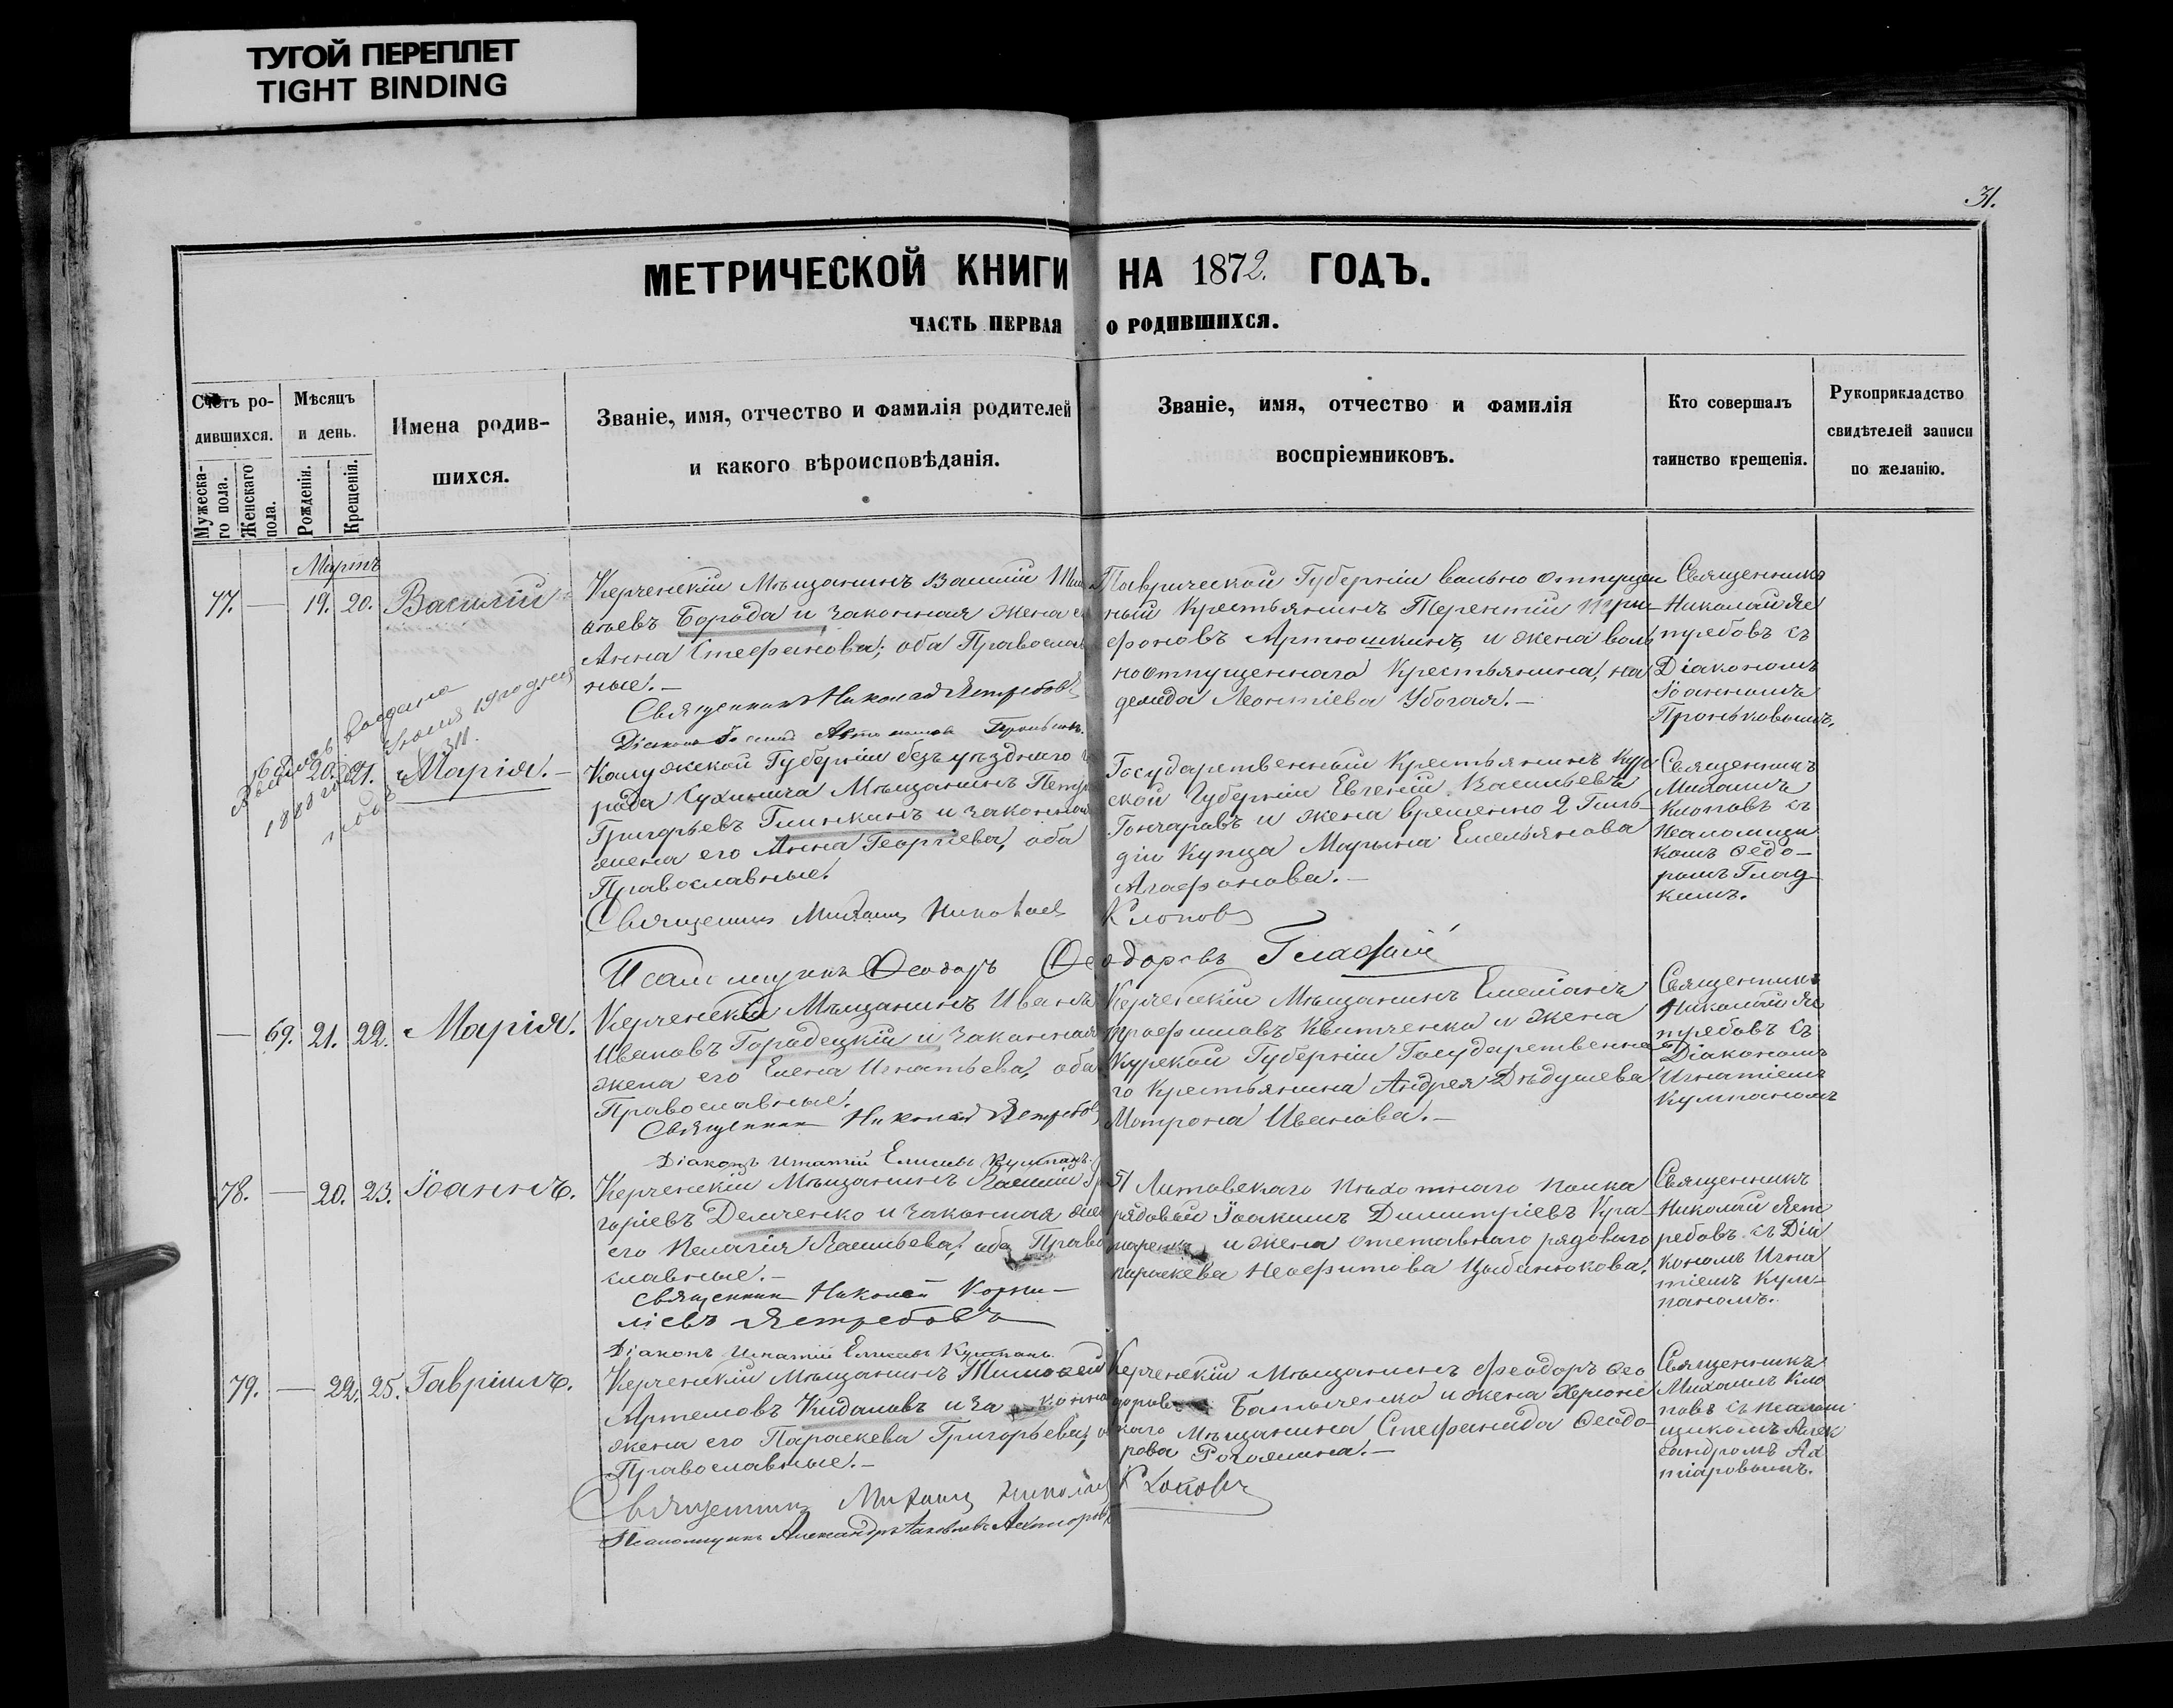 ТУГОЙ ПЕРЕПЛЕТ
TIGHT BINDING
31.
МЕТРИЧЕСКОЙ КНИГИ НА 1872. ГОДЪ.
ЧАСТЬ ПЕРВАЯ О РОДИВШИХСЯ.
Счетъ ро-
дившихся.
Мужеска-
го пола.
Женскаго
пола.
Мѣсяцъ
и день.
Рожденія.
Крещенія.
Имена родив-
шихся.
Званіе, имя, отчество и фамилія родителей
и какого вѣроисповѣданія.
Званіе, имя, отчество и фамилія
воспріемниковъ.
Кто совершалъ
таинство крещенія.
Рукоприкладство
свидѣтелей записи
по желанію.
Мартъ
77. — 19. 20. Василій
Керченскій Мѣщанинъ Василій
атьевъ Борода и законная жена
Анна Стефанова; оба Православ
ные.—
Священникъ Николай Ястребовъ
Діаконъ
Таврической Губерніи вольно отпущен
ный Крестьянинъ Терентій Три-
фоновъ Артюшкинъ, и жена воль
ноотпущеннаго Крестьянина, на
дежда Леонтіева Убогая.—
Священникъ
Николай Яс
требовъ съ
Діакономъ
Іоанномъ
Проньковымъ.
выдано
1888 года
Іюля 19го дня
№ 311.
20. 21. Марія.—
Калужской Губерніи безъуѣзднаго го
рода Сухинича Мѣщанинъ Петръ
Григорьевъ Глинкинъ и законная
жена его Анна Георгіева, оба
Православные.
Священникъ Михаилъ Николаевъ Клоповъ
Псаломщикъ Феодоръ Феодоровъ Гладкій
Государственный Крестьянинъ Кур
ской Губерніи Евгеній Васильевъ
Гончаровъ и жена временно 2 Гиль-
діи Купца Марьяна Емельянова
Агафонова.—
Священникъ
Михаилъ
Клоповъ съ
Псаломщи
комъ Ѳедо-
ромъ Глад-
кимъ.
— 69. 21. 22. Марія.
Керченскій Мѣщанинъ Иванъ
Ивановъ Городецкій и законная
жена его Елена Игнатьева, оба
Православные.
Священникъ Николай Ястребовъ
Діаконъ Игнатій Елисѣевъ Кумпанъ.
Керченскій Мѣщанинъ Емеліанъ
Трофимовъ Квитченко и жена
Курской Губерніи Государственна
го Крестьянина Андрея Дѣдушева
Мотрона Иванова.—
Священникъ
Николай Яс
требовъ съ
Діакономъ
Игнатіемъ
Кумпаномъ
78. — 20. 23. Іоаннъ.
Керченскій Мѣщанинъ Василій Гри
горіевъ Демченко и законная жена
его Пелагія Васильева, оба Право
славные.—
Священникъ Николай Корни-
ліевъ Ястребовъ
Діаконъ Игнатій Елисѣевъ Кумпанъ.
51 Литовскаго пѣхотнаго полка
рядовый Іоакимъ Димитріевъ Кра-
маренко и жена отставнаго рядоваго
параскева Неофитова Цыбанюкова.
Священникъ
Николай Яст
ребовъ съ Діа
кономъ Игна
тіемъ Кум-
паномъ.
79. — 22. 25. Гавріилъ.
Керченскій Мѣщанинъ Тимофей
Артемовъ Кидаловъ и законна
жена его Параскева Григорьева, о
Православные.—
Священникъ Михаилъ Николаевъ Клоповъ
Псаломщикъ Александръ Яковлевъ Ахтіаровъ
Керченскій Мѣщанинъ Феодоръ Ѳео
доровъ Батыченко и жена Херсонс
каго Мѣщанина Стефанида Ѳеодо-
рова Рогожина.—
Священникъ
Михаилъ Кло
повъ съ псалом
щикомъ Алек
сандромъ Ах
тіаровымъ.